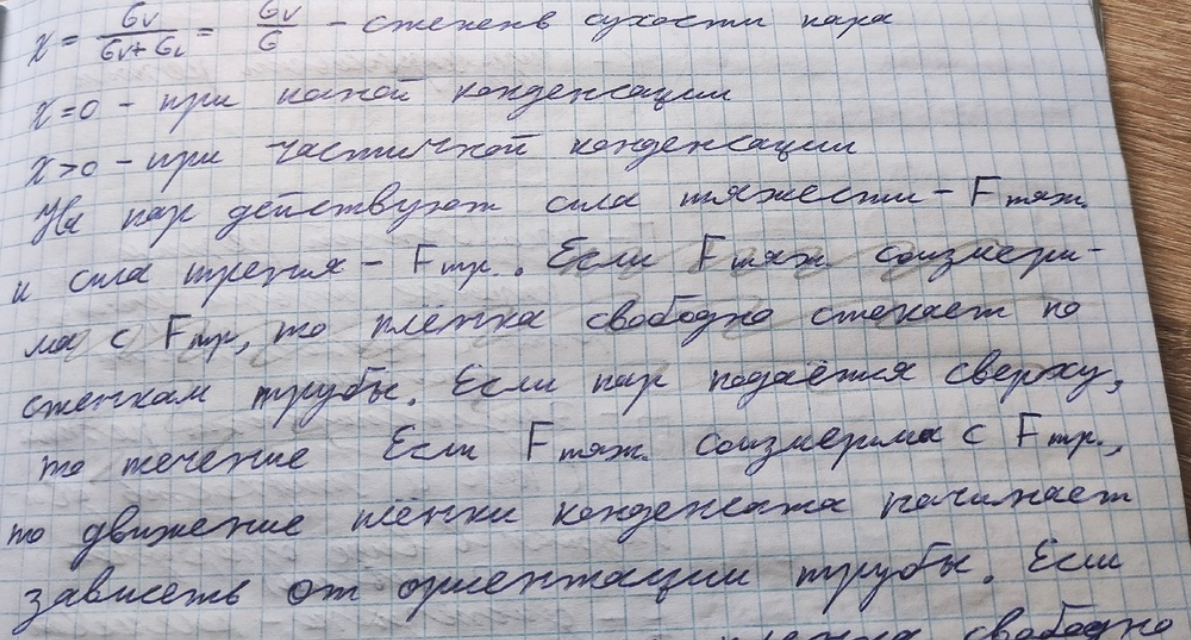 x = Gv/(Gv+GL) = Gv/G – степень сухости пара
x=0 – при полной конденсации
x>0 – при частичной конденсации
На пар действуют сила тяжести – Fтяж.
и сила трения – Fтр.. Если Fтяж. соизмери-
ма с Fтр, то плёнка свободно стекает по
стенкам трубы. Если пар подаётся сверху,
то течение Если Fтяж. соизмерима с Fтр.,
то движение плёнки конденсата начинает
зависеть от ориентации трубы. Если
плёнка свободно